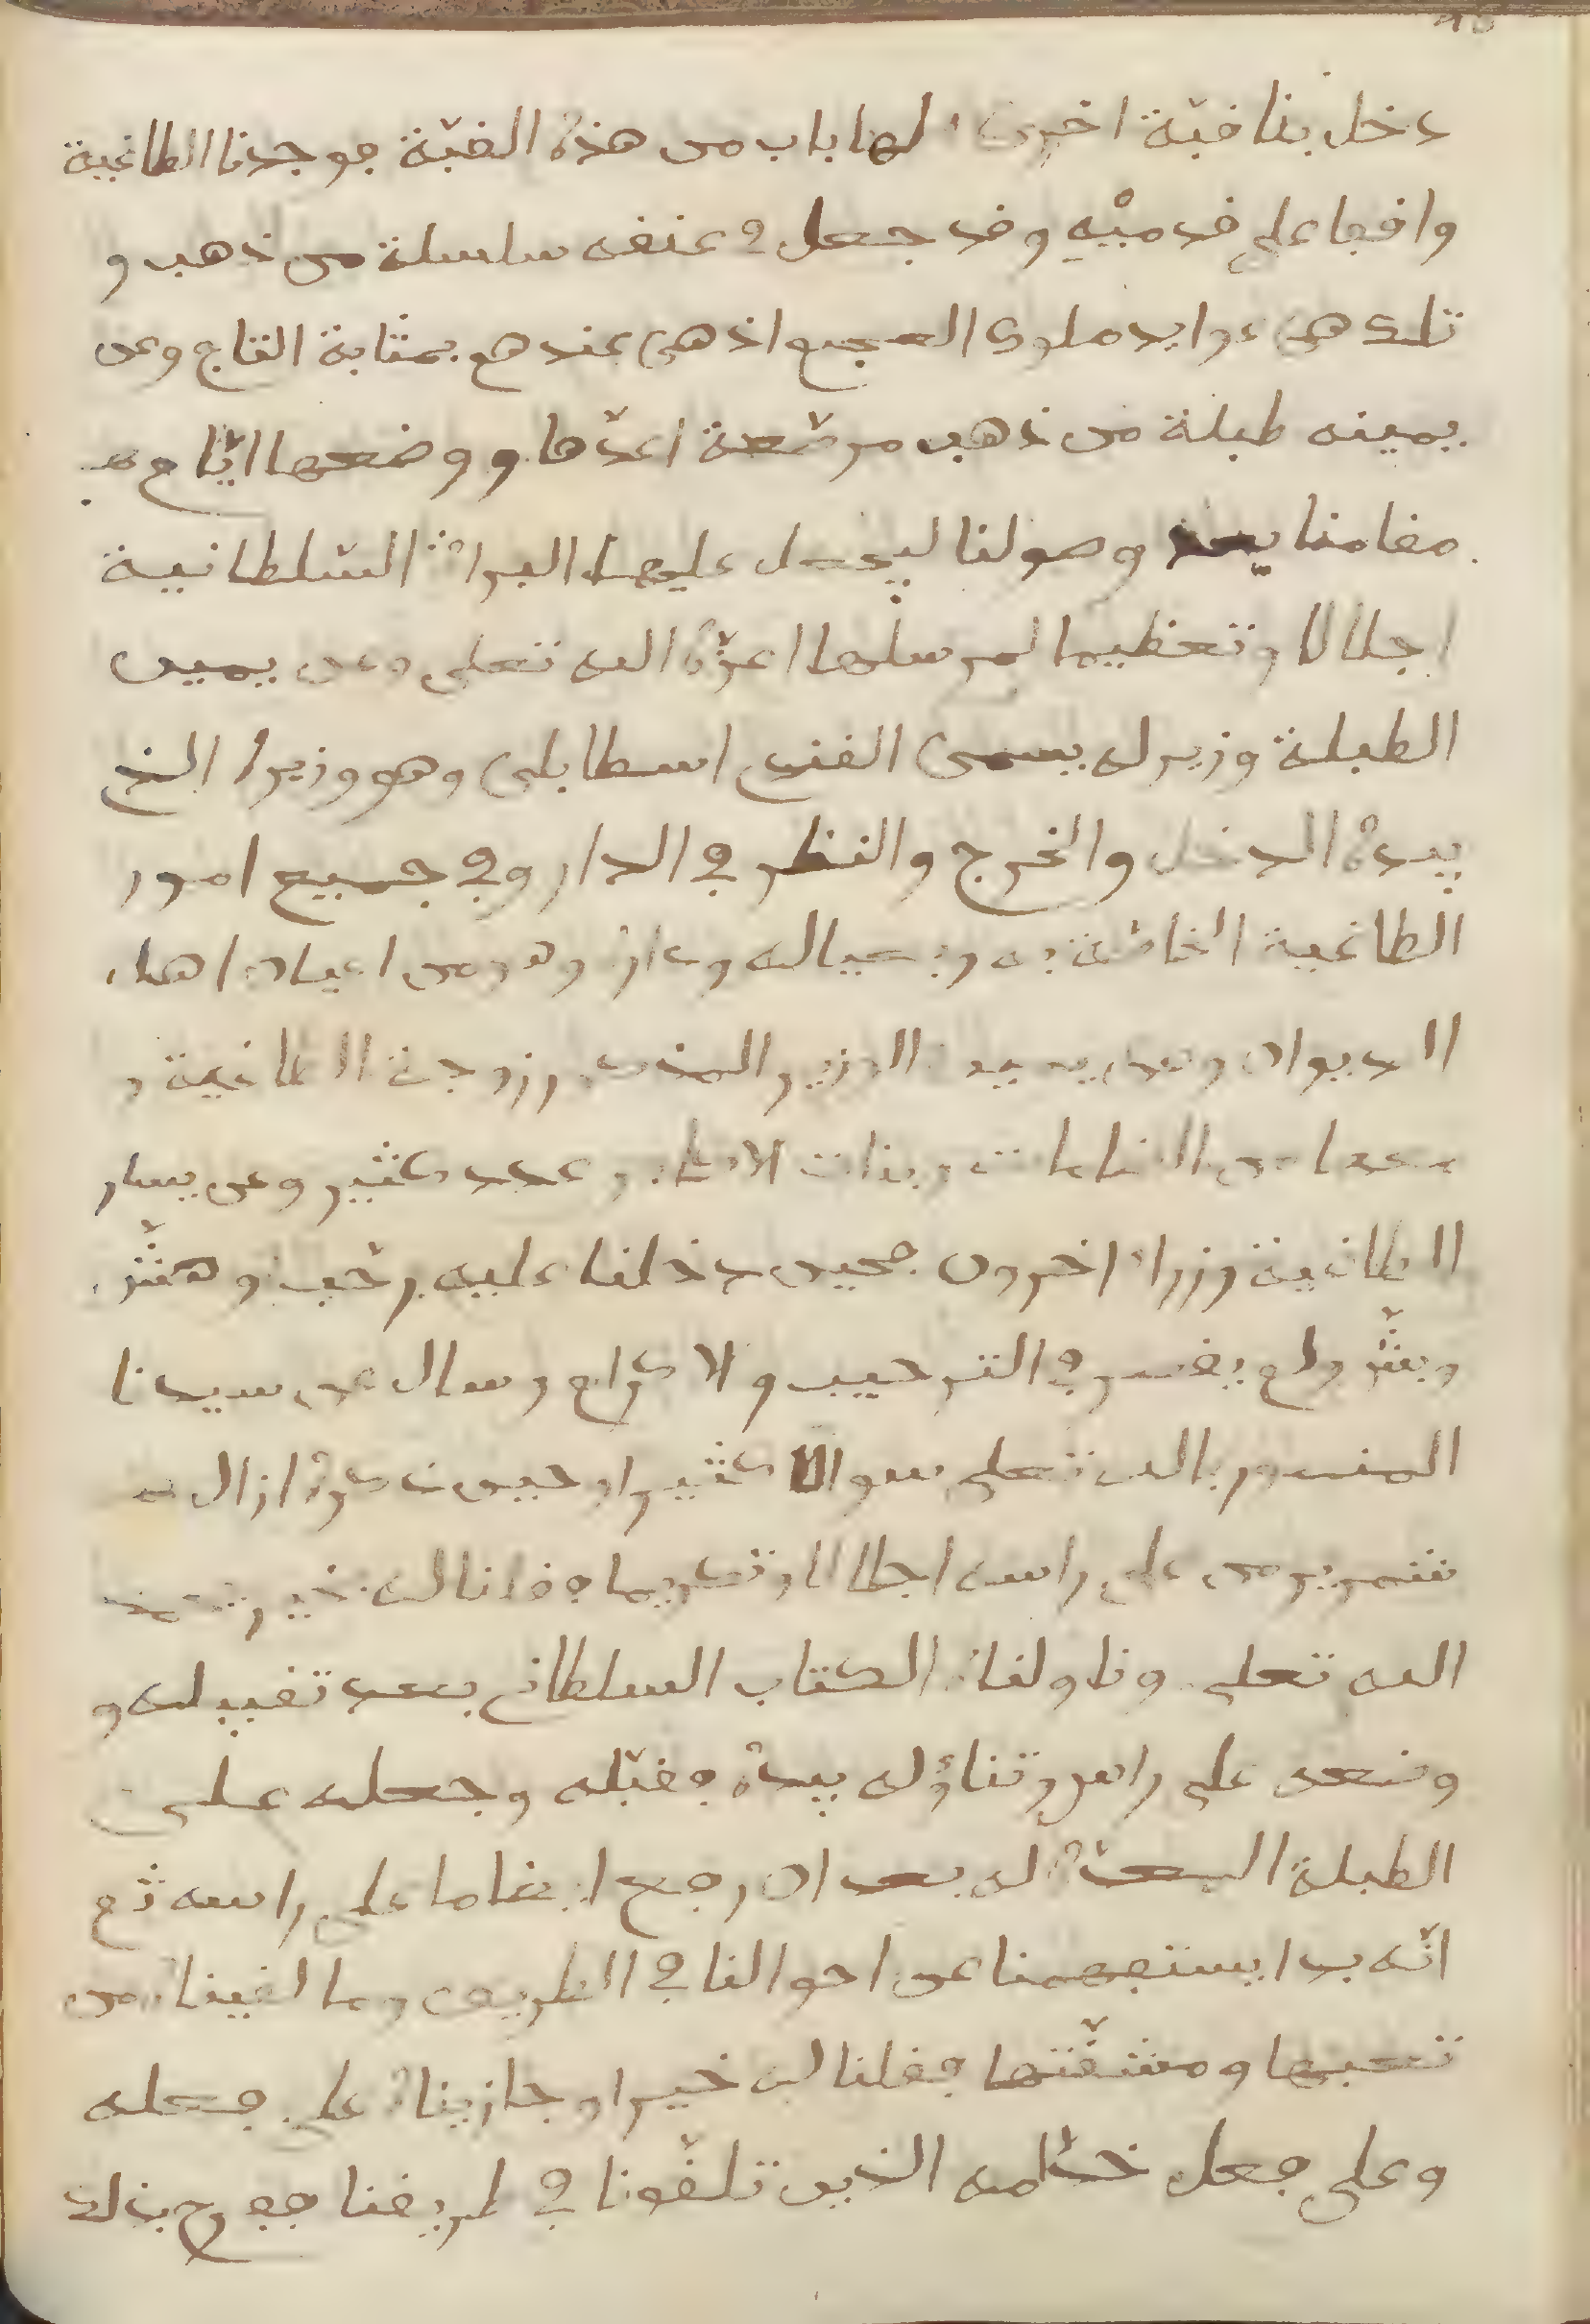 دخل بنا قبة اخرى لها باب من هذه القبة فوجدنا الطاغية
واقفا على قدميه وقد جعل في عنقه سلسلة من ذهب و
تلك هي عوايد ملوك العجم اذ هي عندهم بمثابة التاج وعن
يمينه طبلة من ذهب مرصعة اعدها ووضعها ايام
مقامنا بعد وصولنا ليجعل عليها البراة السلطانية
اجلالا وتعظيما لمرسلها اعزه الله تعلى وعن يمين
الطبلة وزير له يسمى القند اسطابلي وهو وزيره الذي
بيده الدخل والخرج والنظر في الدار وفي جميع امور
الطاغية الخاصة به وبعياله وداره وهو من اعيان اهل
الديوان وعن يمين الوزير المذكور زوجة الطاغية و
معها من الدامات وبنات الاكابر عدد كثير وعن يسار
الطاغية وزراء اخرون فحين دخلنا عليه رحب وهش
وبش ولم يقصر في الترحيب والاكرام وسال عن سيدنا
المنصور بالله تعلى سوالا كثيرا وحين ذكره ازال
شمرير من على راسه اجلالا وتكريما فقلنا له بخير بحمد
الله تعلى وناولناه الكتاب السلطاني بعد تقبيله و
وضعه على راس وتناوله بيده فقبله وجعله على
الطبلة المعدة له بعد ان رفع ايضا ما على راسه ثم
انه بدا يستفهمنا عن احوالنا في الطريق وما لقيناه من
تعبها ومشقتها فقلنا له خيرا وجازيناه على فعله
وعلى فعل خدامه الذين تلقونا في طريقنا ففرح بذلك